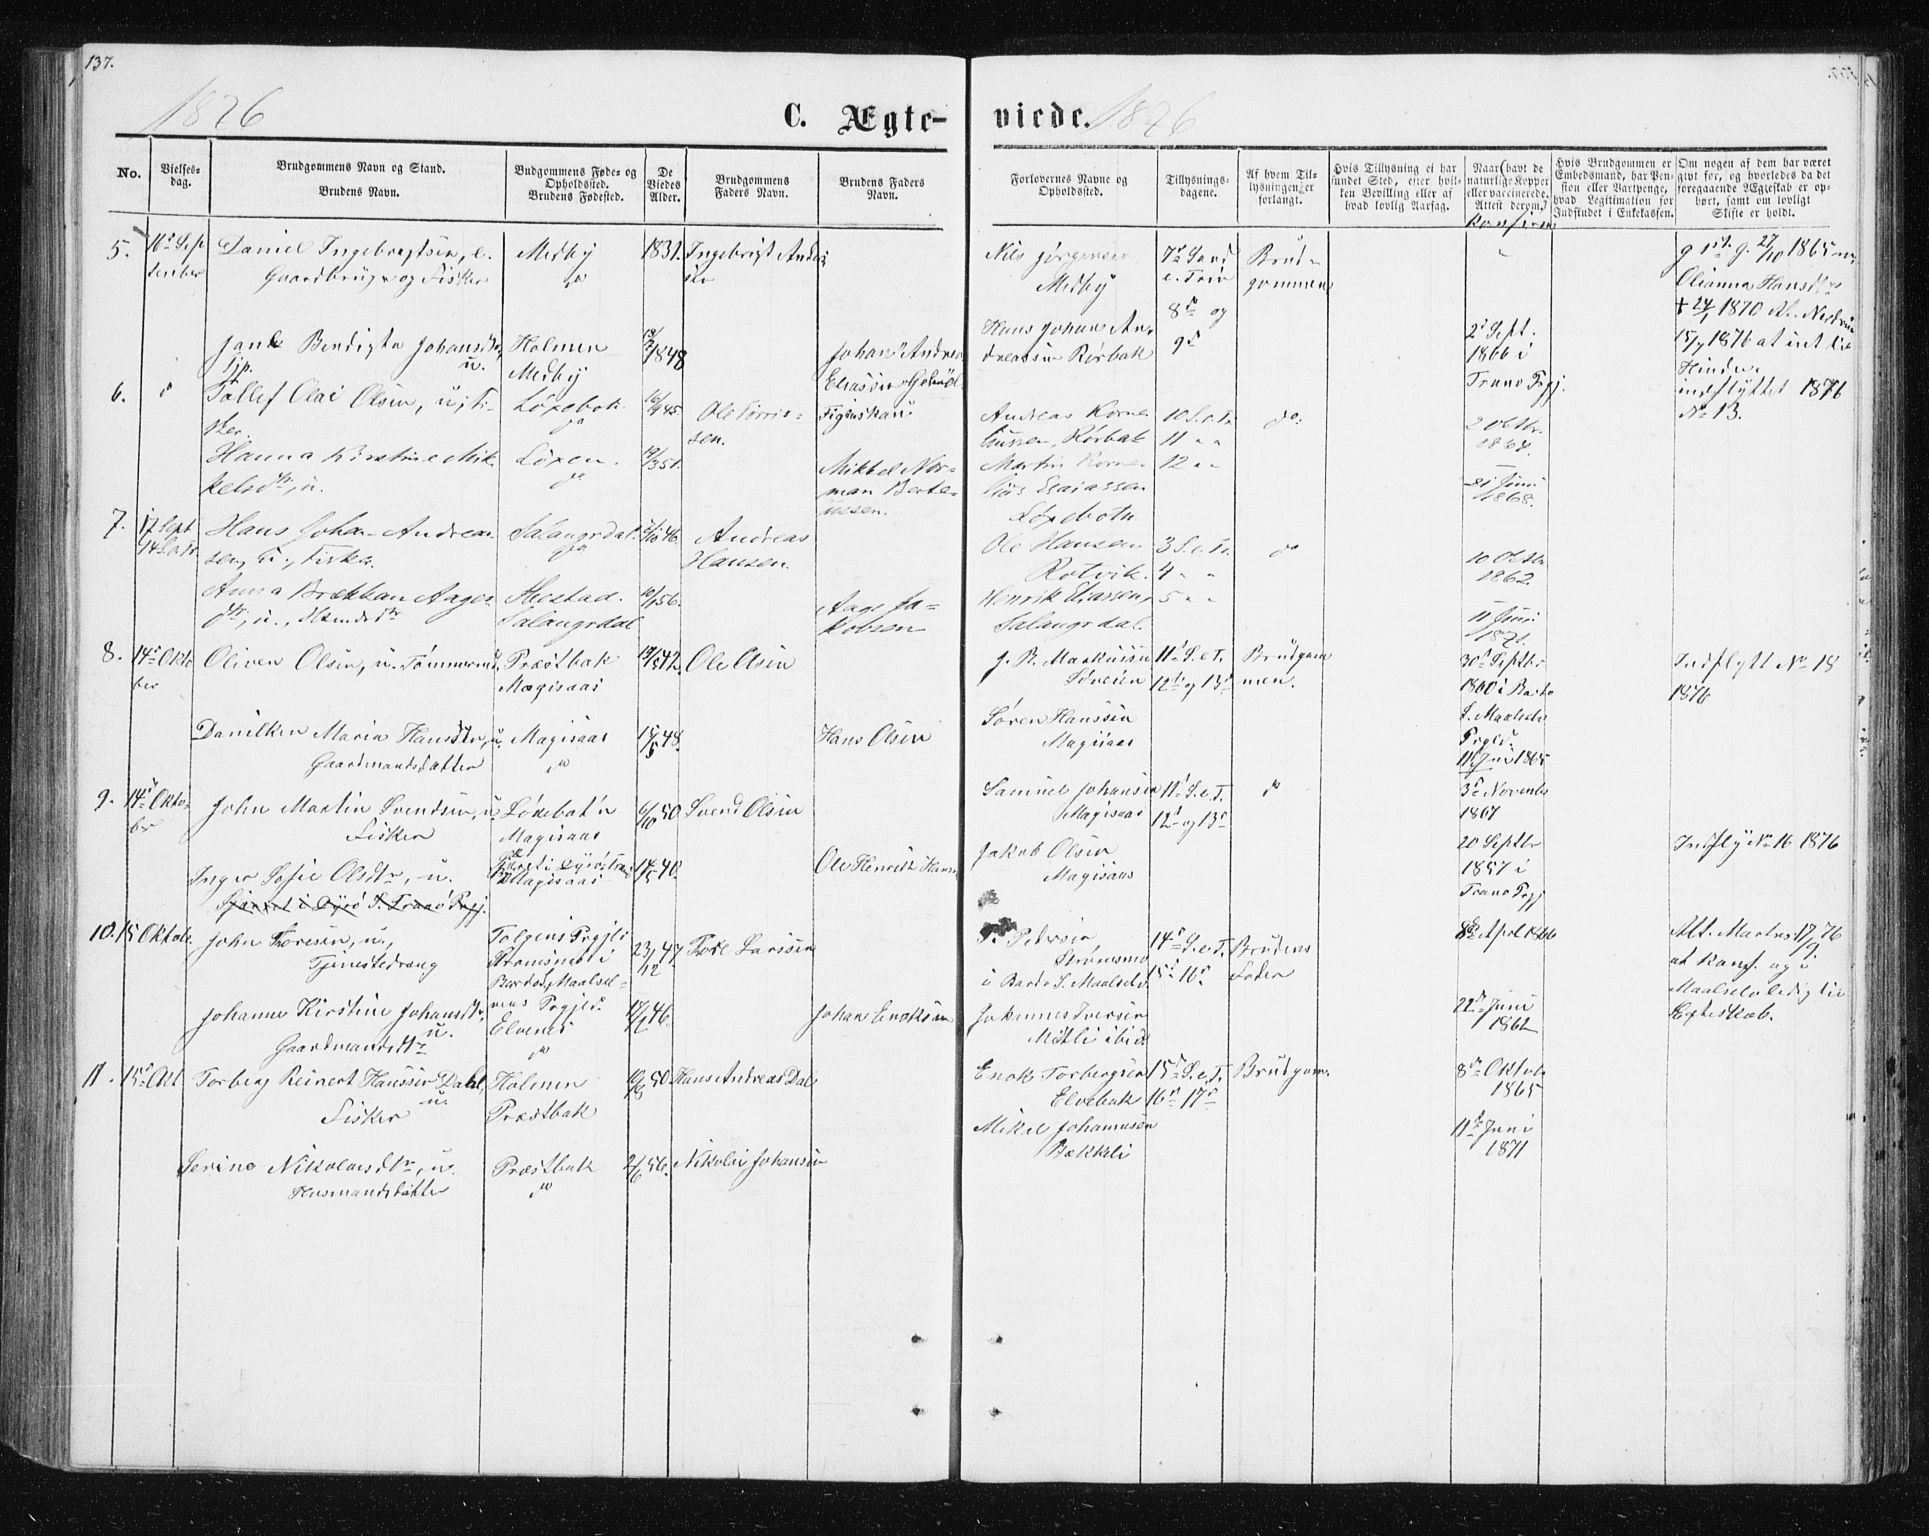 137.
1876
C. Ægte-
viede.
1876
No.
Vielses-
dag.
Brudgommens Navn og Stand.
Brudens Navn.
Budgommens Føde- og
Opholdssted.
Brudens Fødested.
De
Viedes
Alder.
Brudgommens
Faders Navn.
Brudens Faders
Navn.
Forlovernes Navne og
Opholdssted.
Tillysnings-
dagene.
Af hvem Til-
lysningen er
forlangt.
Hvis Tillysning ei har
fundet Sted, efter hvil-
ken Bevilling eller af
hvad lovlig Aarsag.
Naar (havt de
naturlige Kopper
eller vaccinerede.
Attest derom.)
Konfirm
Hvis Brudgommen er
Embedsmand, har Pen-
sion eller Vartpenge,
hvad Legitimation for
Indskud i Enkekassen.
Om nogen af dem har været
givt for, og hvorledes da det
foregaaende Ægteskab er op-
hørt, samt om lovligt
Skifte er holdt.
5.
16de Sep
tember
Daniel Ingebrigtsen, e.
Gaardbruger og Fisker
Medby
do
1831.
Ingebrigt Ander
sen
Nils Jørgensen
Medby
7de Sønd
e. Trin
8de og
9de
Brud-
gommen
g 1ste g. 27/10 1865 m.
Olianna Hansdtr
1870
Bendigte Johansdtr,
u.
Holmen
Medby
1848
Johan Andreas
Eliassen
Hans Johan An-
dreassen Rørbak
2d Sept.
1866 i
Tranø Prgj.
15/9 1876 at intet til
Hinder
indflyttet 1876
No 13.
6.
do
Tollef Olai Olsen, u, fi-
sker.
Løxebotn
do
16/9 45
Ole Torris-
sen.
Andreas Korne-
liussen, Rørbak
10 S. e. Tr.
11 " "
12 " "
do:
2 Oktbr.
1864.
Hanna Kirstine Mik-
kelsdtr, u.
Løxen.
do
19/3 51.
Mikkel Nor-
man Berte-
ussen.
Martin Korne-
lius Esaiassen
Løxebotn.
21 Juni
1868.
7.
17 Sept
14 S.e.Tr.
Hans Johan Andreas-
sen, u., fisker.
Salangsdal.
do
46.
Andreas
Hansen.
Ole Hansen
Rotvik.
3 S. e. Tr.
4 " "
5 " "
do
10 Oktbr
1862
Anna Brekkan Aages-
dtr, u., Husmdsdtr
Salangsdal
56.
Aage Ja-
kobsen
Henrik Eliassen,
Salangsdal.
11 Juni
1871.
8.
14de Okto
ber
Oliver Olsen, u. Tømmermd.
Præstbak
Magisaas
42.
Ole Olsen
J. B. Markussen
Søveien
11te S. e. T.
12te og 13de
Brudgom
men.
30de Septbr
1860 i Bardo
S. Maalselv
Prgld.
Indflytt No 18
1876
Danilken Maria Hansdtr, u.
Gaardmandsdatter
Magisaas
do
15/5 48.
Hans Olsen
Søren Hanssen
Magisaas
11te Juni 1865
9.
14de Okto-
ber
John Martin Svendsen, u.
Fisker
Løxebotn
Magisaas
6/10 50
Svend Olsen
Samuel Johansen
Magisaas
11te S. e. T.
12te og 13de
do
3de Novembr
1867
Inger Sofie Olsdtr, u.
Magisaas
40.
Ole Henrik Hansen
Jakob Olsen
Magisaas
20 Septbr
1857 i
Tranø Prgj
Indfly No 16 1876
10.
15 Oktob.
John Toresen, u.,
Tjenestedreng
Tolgens Prgjld
Strømsmo i
Bardo S. Maalsel-
vens Prgjld
23/12 47
Tore Larssen
T. Pedersen
Strømsmo
i Bardo S. Maalselv
14de S. e. T.
15de 16de
Brudens
Fader
8de April 1866
Att. Maatnes 17/9 76
at Konf. og i
Maalselv ledig til
Egteskab.
Johanne Kirstine Johansdtr,
u.
Gaardmandsdtr
Elvenes
do
46.
Johan Enoksen
Johannes Iversen
Moli ibid
22de Juni
1862
11.
15de Okt
Torberg Reinert Hanssen Dahl,
u.
Fisker
Holmen
Præstbak
50.
Hans Andreas Dal
Enok Torbergsen
Elvebak
15de S. e. T.
16de 17de
Brudgom.
8de Oktob
1865
Serine Nikolaisdtr, u.
Husmandsdatter
Præstbak
do
2/6 56.
Nikolai Johansen
Mikel Johannesen
Bækkeli
11te Juni
1871